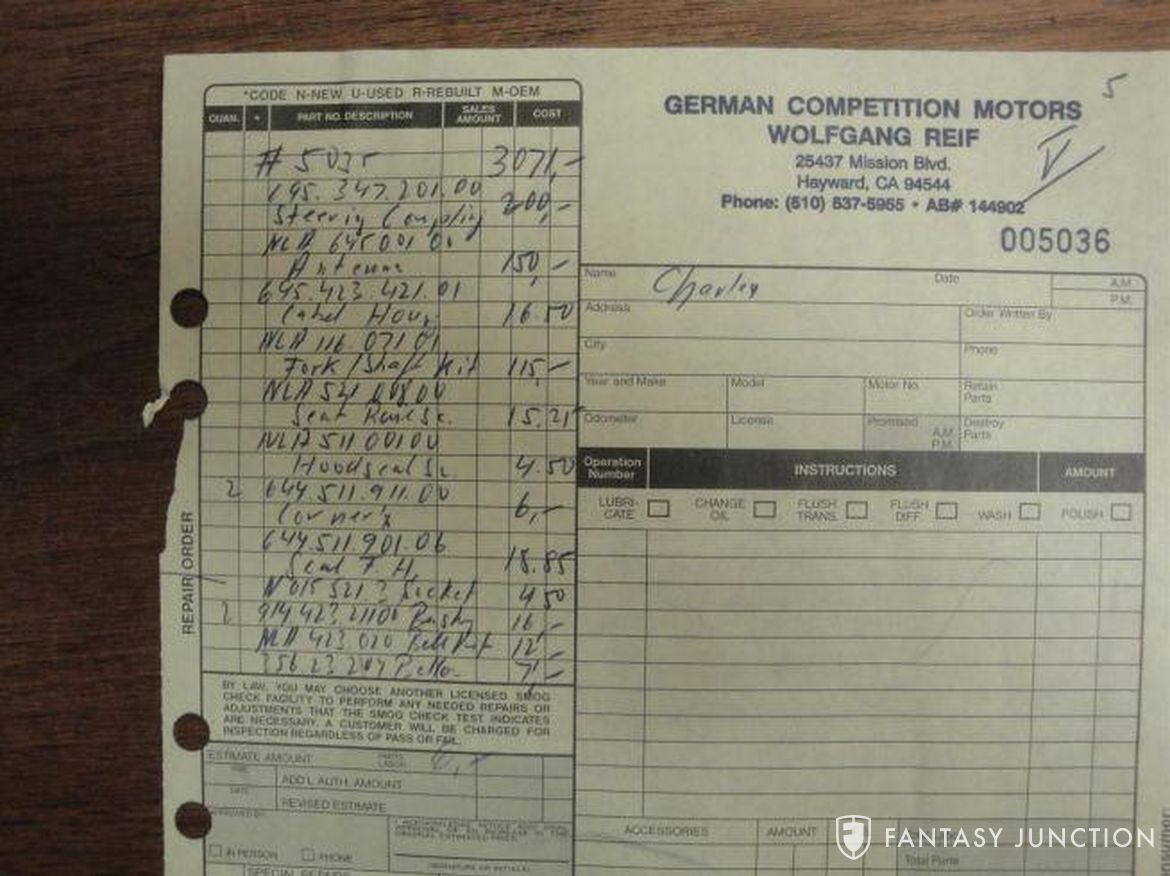 *CODE N-NEW U-USED R-REBUILT M-OEM
QUAN. * PART NO. DESCRIPTION SALES AMOUNT COST
# 5035 3071,-
695.347.201.00
Steering Coupling 200,-
NLA 645 001 00
Antenna 150,-
645.423.421.01
16.50
NLA 116 071 01
Fork/Shaft Kit 115,-
NLA 521 008 00
15.25
NLA 511 001 00
Hoodseal Sc. 4.50
2 644.511.911.00
Corner's 6,-
644.511.901.06
Seal F. H. 18.85
Socket 4 50
2 914 423 211 00 16,-
NLA 423 020 12,-
7,-
BY LAW, YOU MAY CHOOSE ANOTHER LICENSED SMOG
CHECK FACILITY TO PERFORM ANY NEEDED REPAIRS OR
ADJUSTMENTS THAT THE SMOG CHECK TEST INDICATES
ARE NECESSARY. A CUSTOMER WILL BE CHARGED FOR
INSPECTION REGARDLESS OF PASS OR FAIL.
ESTIMATE AMOUNT PARTS LABOR
TIME
ADD'L AUTH. AMOUNT
DATE
REVISED ESTIMATE
IN PERSON PHONE
SPECIAL REPAIRS
REPAIR ORDER
5
GERMAN COMPETITION MOTORS
WOLFGANG REIF
25437 Mission Blvd.
Hayward, CA 94544
Phone: (510) 537-5955 • AB# 144902
005036
Name Charley Date A.M.
P.M.
Address Order Written By
City Phone
Year and Make Model Motor No. Retain Parts
Odometer License Promised A.M. P.M. Destroy Parts
Operation Number INSTRUCTIONS AMOUNT
LUBRI-CATE CHANGE OIL FLUSH TRANS. FLUSH DIFF. WASH POLISH
ACCESSORIES AMOUNT
Total Parts
FANTASY JUNCTION